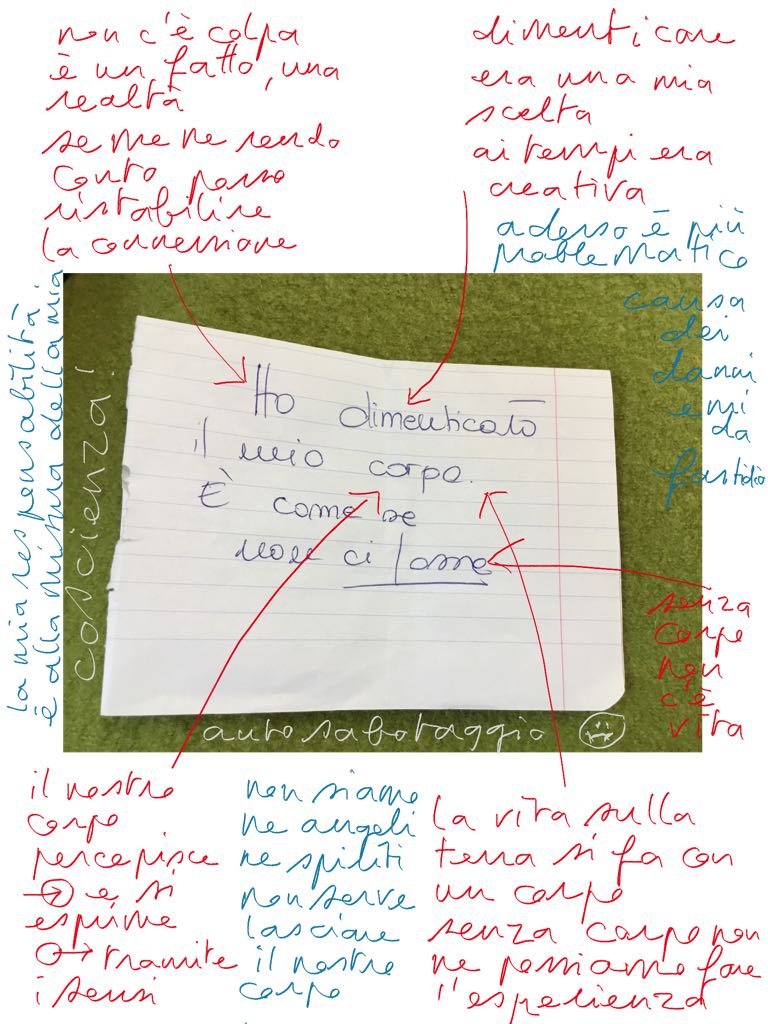 non c'è colpa
è un fatto, una
realtà
se me ne rendo
conto posso
ristabilire
la connessione
dimenticare
era una mia
scelta
ai tempi era
creativa
adesso è più
problematico
causa
dei
danni
e mi
da
fastidio
la mia responsabilità
è alla misura della mia
coscienza!
Ho dimenticato
il mio corpo.
È come se
non ci fosse
senza
corpo
non
c'è
vita
autosabotaggio
il nostro
corpo
percepisce
→ e si
esprime
→ tramite
i sensi
non siamo
ne angeli
ne spiriti
non serve
lasciare
il nostro
corpo
la vita sulla
terra si fa con
un corpo
senza corpo non
ne possiamo fare
l'esperienza